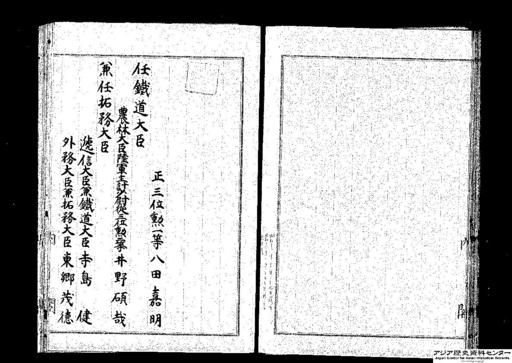 任鐵道大臣
正三位勲一等八田嘉明
兼任拓務大臣
農林大臣陸軍主計少尉従三位勲四等井野碩哉
遞信大臣兼鐵道大臣寺島 健
外務大臣兼拓務大臣東郷茂德
内閣
アジア歴史資料センター
Japan Center for Asian Historical Records